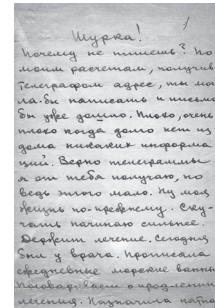 Шурка!
Почему не пишешь? По
моим расчетам, получив
телеграфом адрес, ты мо
гла-бы написать и письмо
бы уже дошло. Плохо, очень
плохо когда долго нет из
дома никаких информа
ций. Верно телеграммы
я от тебя получаю, но
ведь этого мало. Ну моя
жизнь по-прежнему. Ску-
чать начинаю сильнее.
Держит лечение. Сегодня
был у врача. Прописала
ежедневные морские ванны
лечения. Назначила